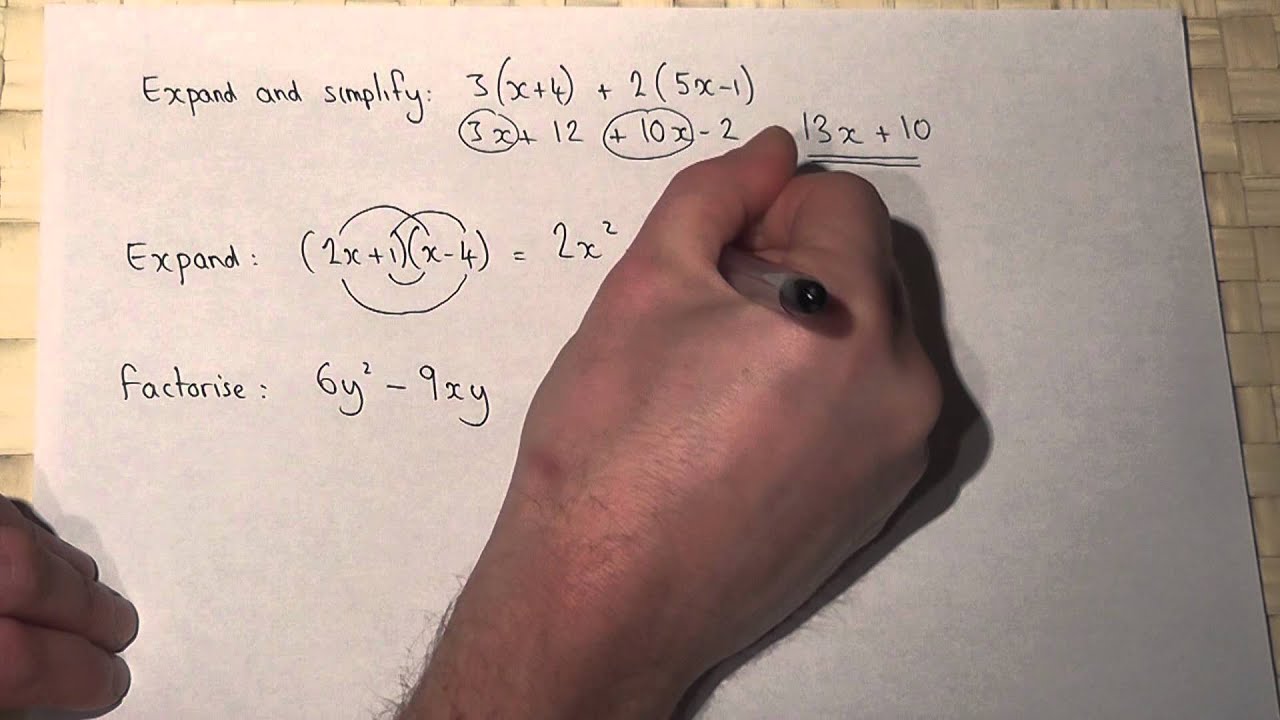 Expand and simplify: 3(x+4) + 2(5x-1)
3x + 12 + 10x - 2 13x + 10
Expand: (2x+1)(x-4) = 2x²
factorise: 6y² - 9xy